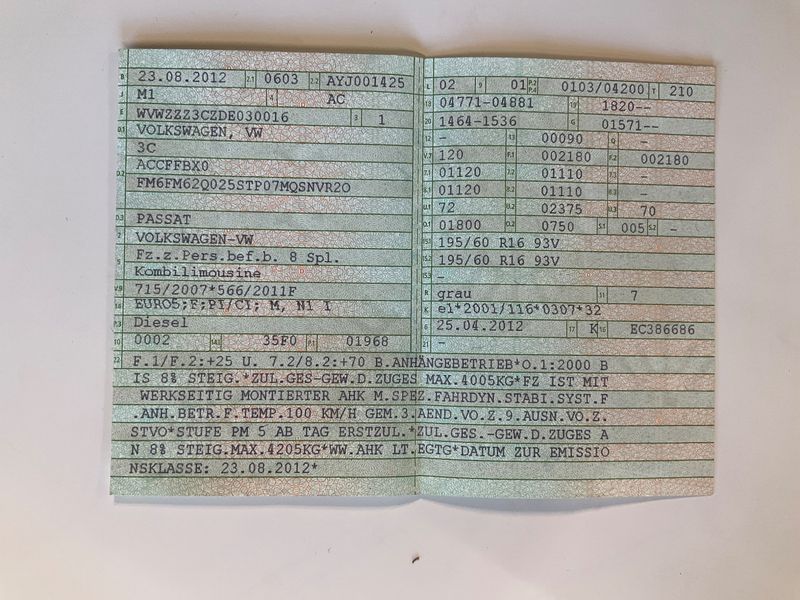 B 23.08.2012 2.1 0603 2.2 AYJ001425
J M1 4 AC
E WVWZZZ3CZDE030016 3 1
D.1 VOLKSWAGEN, VW
3C
D.2 ACCFFBX0
FM6FM62Q025STP07MQSNVR2O
D.3 PASSAT
2 VOLKSWAGEN-VW
5 Fz.z.Pers.bef.b. 8 Spl.
Kombilimousine
V.9 715/2007*566/2011F
14 EURO5;F;PI/CI; M, N1 I
P.3 Diesel
10 0002 14.1 35F0 P.1 01968
L 02 9 01 P.2 P.4 0103/04200 T 210
18 04771-04881 19 1820--
20 1464-1536 G 01571--
12 - 13 00090 Q -
V.7 120 F.1 002180 F.2 002180
7.1 01120 7.2 01110 7.3 -
8.1 01120 8.2 01110 8.3 -
U.1 72 U.2 02375 U.3 70
O.1 01800 O.2 0750 S.1 005 S.2 -
15.1 195/60 R16 93V
15.2 195/60 R16 93V
15.3 -
R grau 11 7
K e1*2001/116*0307*32
6 25.04.2012 17 K 16 EC386686
21 -
22 F.1/F.2:+25 U. 7.2/8.2:+70 B.ANHÄNGEBETRIEB*O.1:2000 B
IS 8% STEIG.*ZUL.GES-GEW.D.ZUGES MAX.4005KG*FZ IST MIT
WERKSEITIG MONTIERTER AHK M.SPEZ.FAHRDYN.STABI.SYST.F
.ANH.BETR.F.TEMP.100 KM/H GEM.3.AEND.VO.Z.9.AUSN.VO.Z.
STVO*STUFE PM 5 AB TAG ERSTZUL.*ZUL.GES.-GEW.D.ZUGES A
N 8% STEIG.MAX.4205KG*WW.AHK LT.EGTG*DATUM ZUR EMISSIO
NSKLASSE: 23.08.2012*